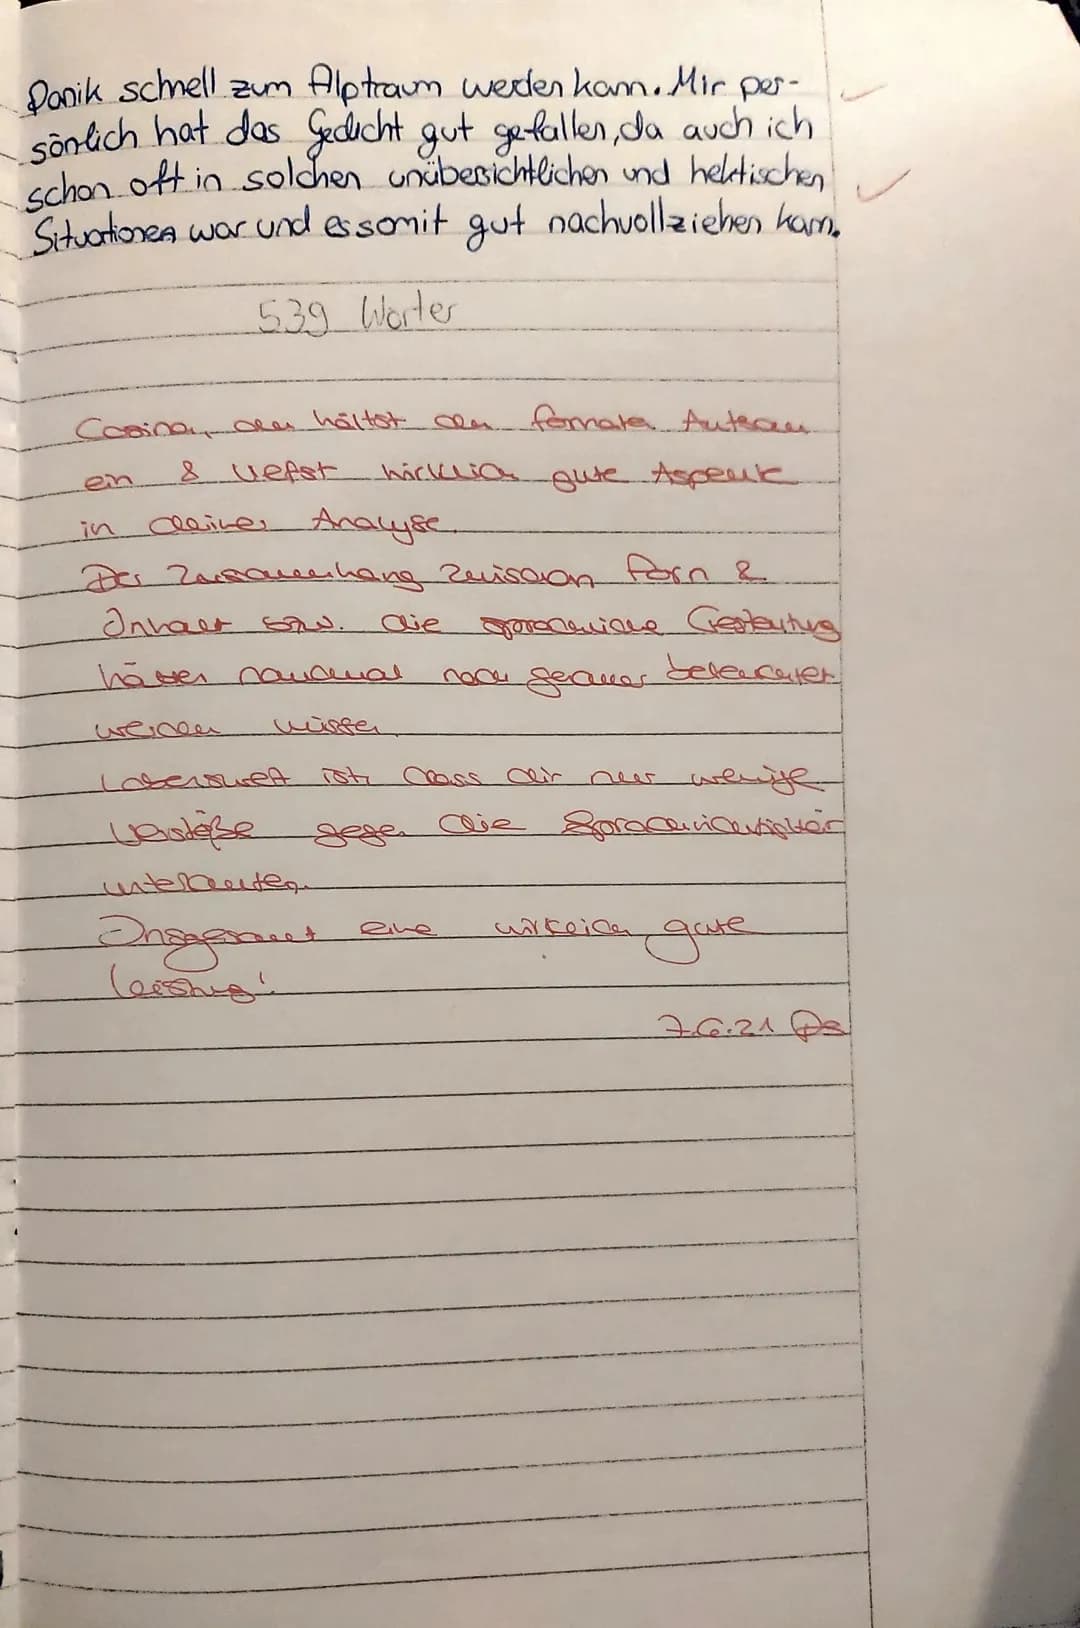 Panik schnell zum Alptraum werden kann. Mir per-
sönlich hat das Gedicht gut gefallen, da auch ich
schon oft in solchen unübersichtlichen und hektischen
Situationen war und es somit gut nachvollziehen kann.
539 Wörter
du hältst den formalen Aufbau
ein & lieferst wirklich gute Aspekte
in deiner Analyse.
Der Zusammenhang zwischen Form &
Inhalt bzw. die sprachliche Gestaltung
hätten manchmal noch genauer beleuchtet
werden müssen.
Lobenswert ist, dass dir nur wenige
Verstöße gegen die Sprachrichtigkeit
unterlaufen.
Insgesamt eine wirklich gute
Leistung!
7.6.21